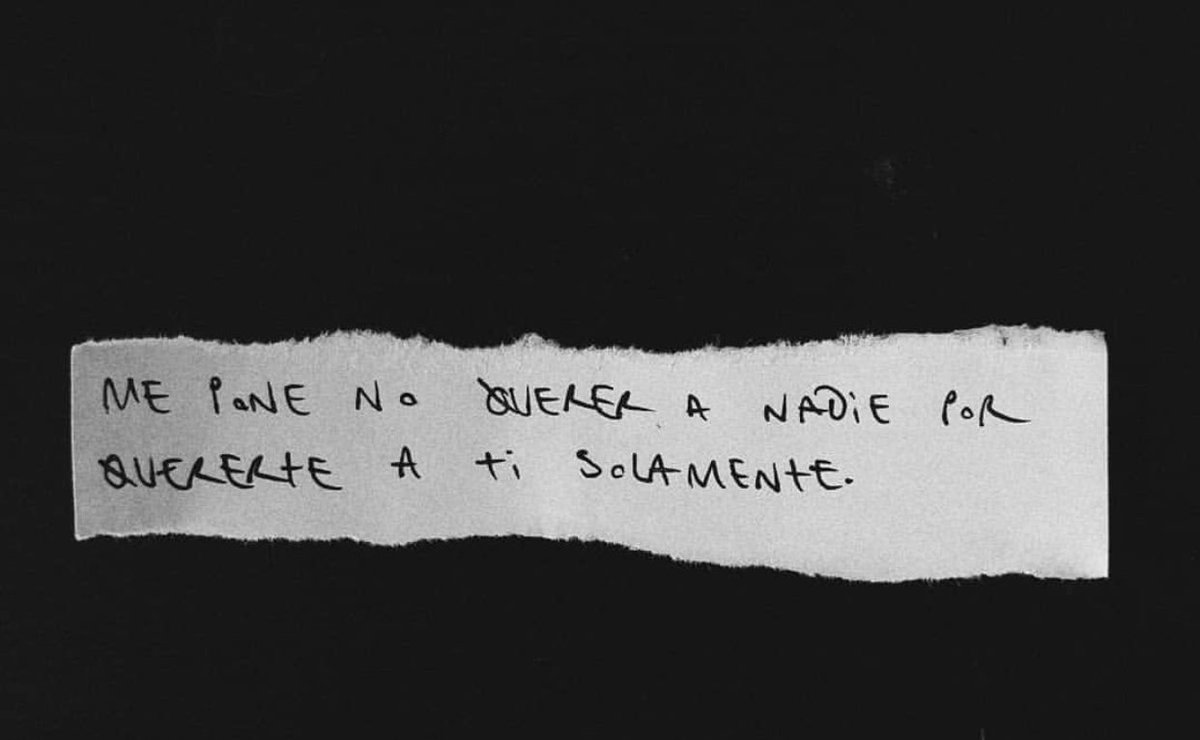 ME PONE NO QUERER A NADiE POR
QUERERtE A ti SOLAMENtE.